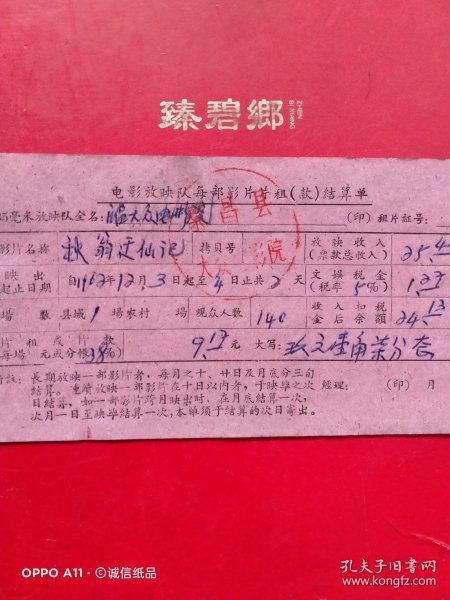 臻碧鄉
ZHEN BI XIANG
电影放映队每部影片片租(款)结算单
5毫米放映队全名: 大众电影院 (印) 租片证号:
影片名称 秋翁遇仙记 拷贝号 放映收入(票款总收入) 25.4
映出起止日期 自1962年12月3日起至4日止共2天 文娱税金(税率5%) 1.27
場数 县城1場农村 場观众人数 140 收入扣税金后余额 24.13
片租或片款 每場 元或分帳38% 9.17元 大写: 玖元壹角柒分
附註: 長期放映一部影片者,每月之十、廿日及月底分三旬
結算。連續放映一部影片在十日以内者,于映毕之次 經理: (印) 月
日結算,如一部影片跨月映出时,在月底結算一次,
次月一日至映毕結算一次,本单須于結算的次日寄出。
昌县
大 影院
OPPO A11·©诚信纸品
孔夫子旧书网
www.kongfz.com